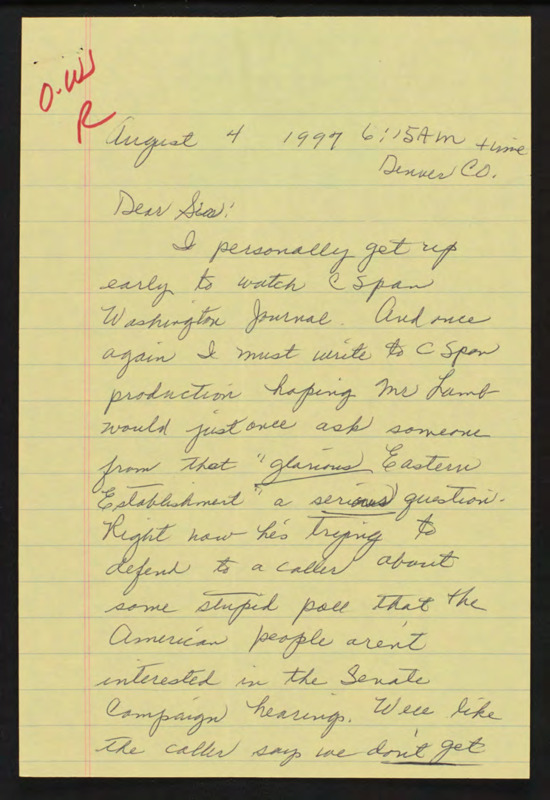 O.W
R
August 4 1997 6:15AM time
Denver CO.
Dear Sirs:
I personally get up
early to watch C Span
Washington Journal. And once
again I must write to C Span
production hoping Mr Lamb
would just once ask someone
from that "glorious Eastern
Establishment" a serious question.
Right now he's trying to
defend to a caller about
some stupid poll that the
American people aren't
interested in the Senate
Campaign hearings. Well like
the caller says we don't get